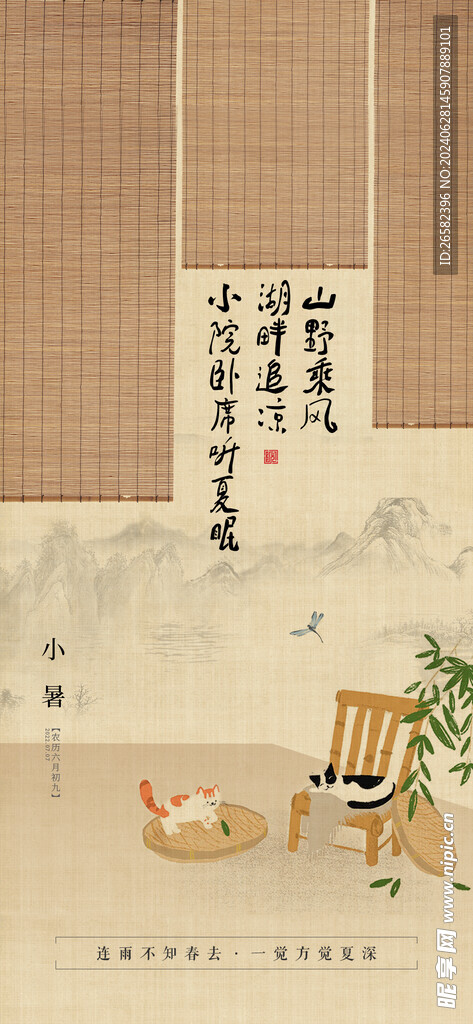 山野乘风
湖畔追凉
小院卧席听夏眠
小暑
【农历六月初九】
2022.07.07
连雨不知春去·一觉方觉夏深
ID:26582396 NO:20240628145907889101
昵享网 www.nipic.cn